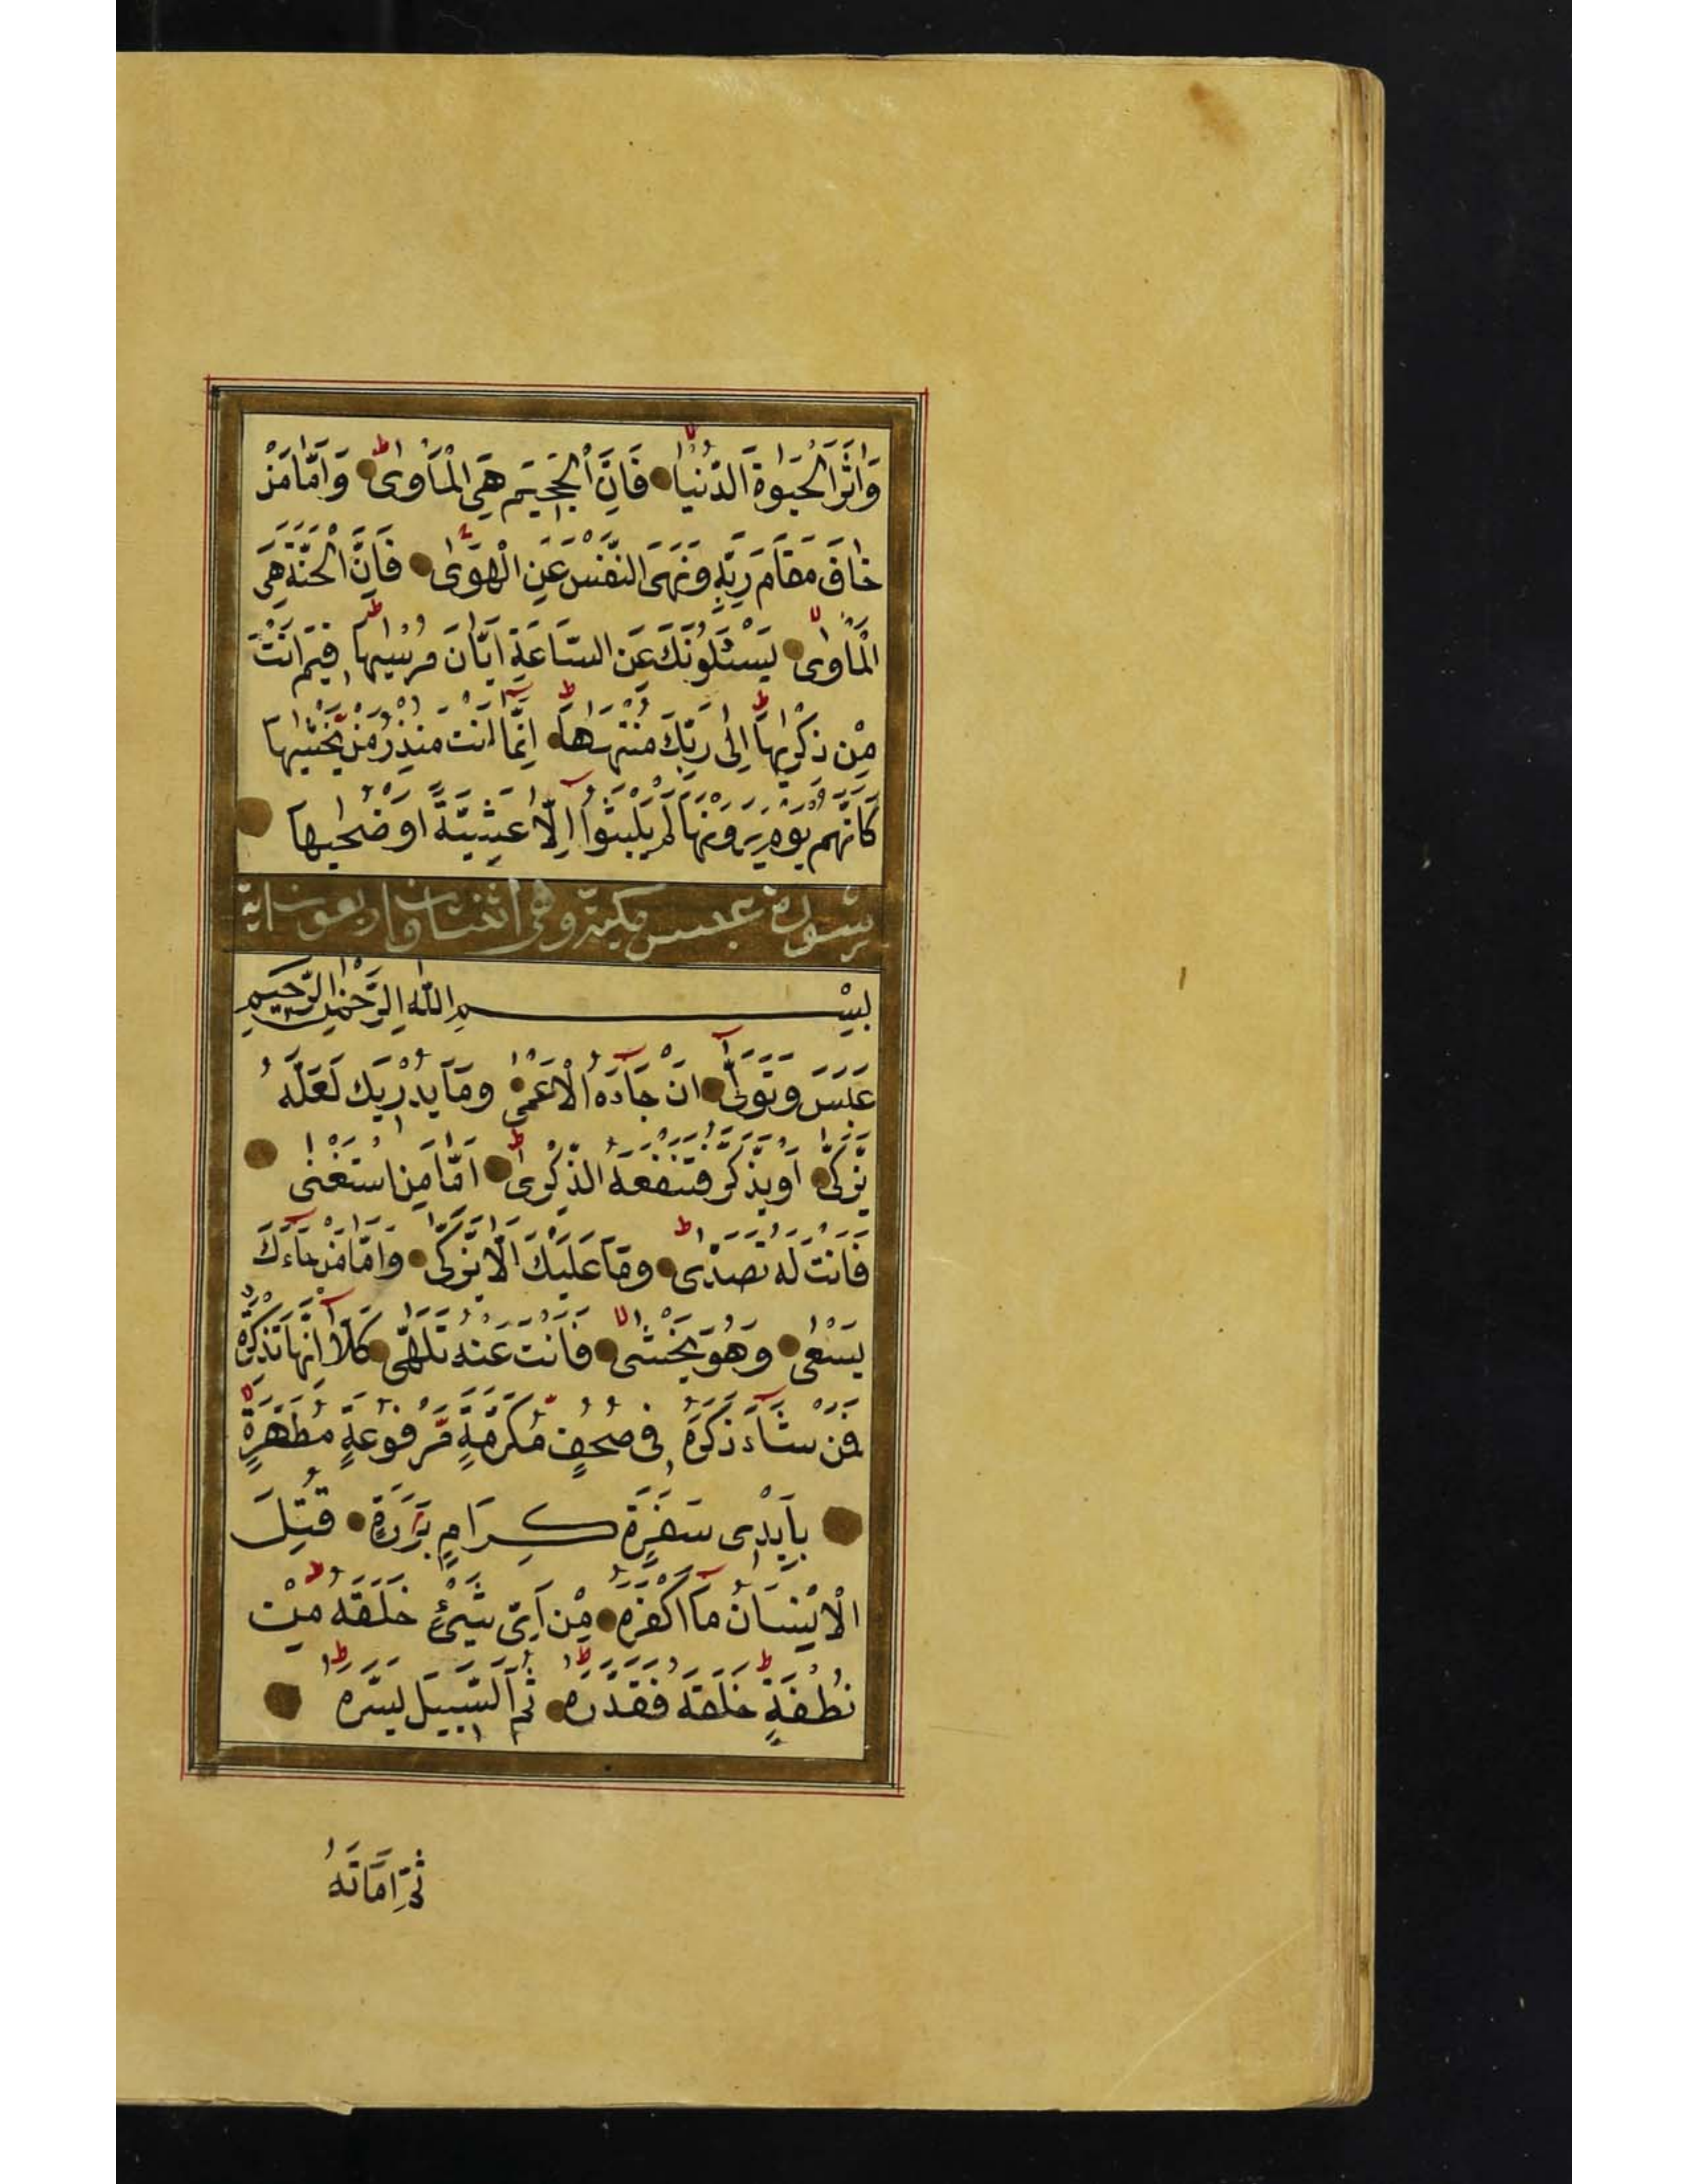 وَاٰثَرَ الْحَيٰوةَ الدُّنْيَا فَاِنَّ الْجَحِيمَ هِيَ الْمَاْوٰى وَاَمَّا مَنْ
خَافَ مَقَامَ رَبِّهِ وَنَهَى النَّفْسَ عَنِ الْهَوٰى فَاِنَّ الْجَنَّةَ هِيَ
الْمَاْوٰى يَسْئَلُونَكَ عَنِ السَّاعَةِ اَيَّانَ مُرْسٰيهَا فِيمَ اَنْتَ
مِنْ ذِكْرٰيهَا اِلٰى رَبِّكَ مُنْتَهٰهَا اِنَّمَا اَنْتَ مُنْذِرُ مَنْ يَخْشٰيهَا
كَاَنَّهُمْ يَوْمَ يَرَوْنَهَا لَمْ يَلْبَثُوا اِلَّا عَشِيَّةً اَوْ ضُحٰيهَا
سورة عبس مكية وهي اثنتان واربعون اية
بِسْمِ اللهِ الرَّحْمٰنِ الرَّحِيمِ
عَبَسَ وَتَوَلّٰى اَنْ جَاءَهُ الْاَعْمٰى وَمَا يُدْرِيكَ لَعَلَّهُ
يَزَّكّٰى اَوْ يَذَّكَّرُ فَتَنْفَعَهُ الذِّكْرٰى اَمَّا مَنِ اسْتَغْنٰى
فَاَنْتَ لَهُ تَصَدّٰى وَمَا عَلَيْكَ اَلَّا يَزَّكّٰى وَاَمَّا مَنْ جَاءَكَ
يَسْعٰى وَهُوَ يَخْشٰى فَاَنْتَ عَنْهُ تَلَهّٰى كَلَّا اِنَّهَا تَذْكِرَةٌ
فَمَنْ شَاءَ ذَكَرَهُ فِي صُحُفٍ مُكَرَّمَةٍ مَرْفُوعَةٍ مُطَهَّرَةٍ
بِاَيْدِي سَفَرَةٍ كِرَامٍ بَرَرَةٍ قُتِلَ
الْاِنْسَانُ مَا اَكْفَرَهُ مِنْ اَيِّ شَيْءٍ خَلَقَهُ مِنْ
نُطْفَةٍ خَلَقَهُ فَقَدَّرَهُ ثُمَّ السَّبِيلَ يَسَّرَهُ
ثُمَّ اَمَاتَهُ